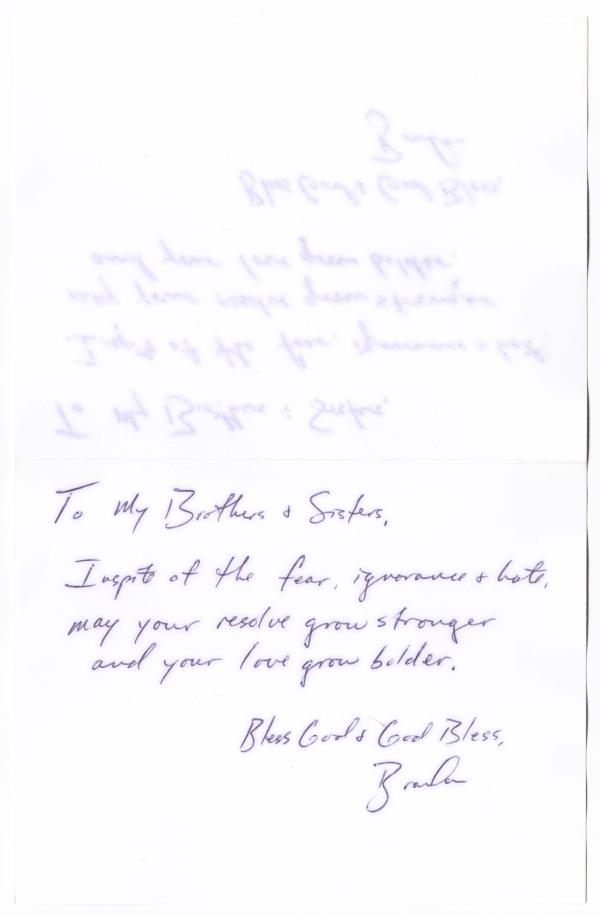 To My Brothers & Sisters,
Inspite of the fear, ignorance & hate,
may your resolve grow stronger
and your love grow bolder.
Bless God & God Bless,